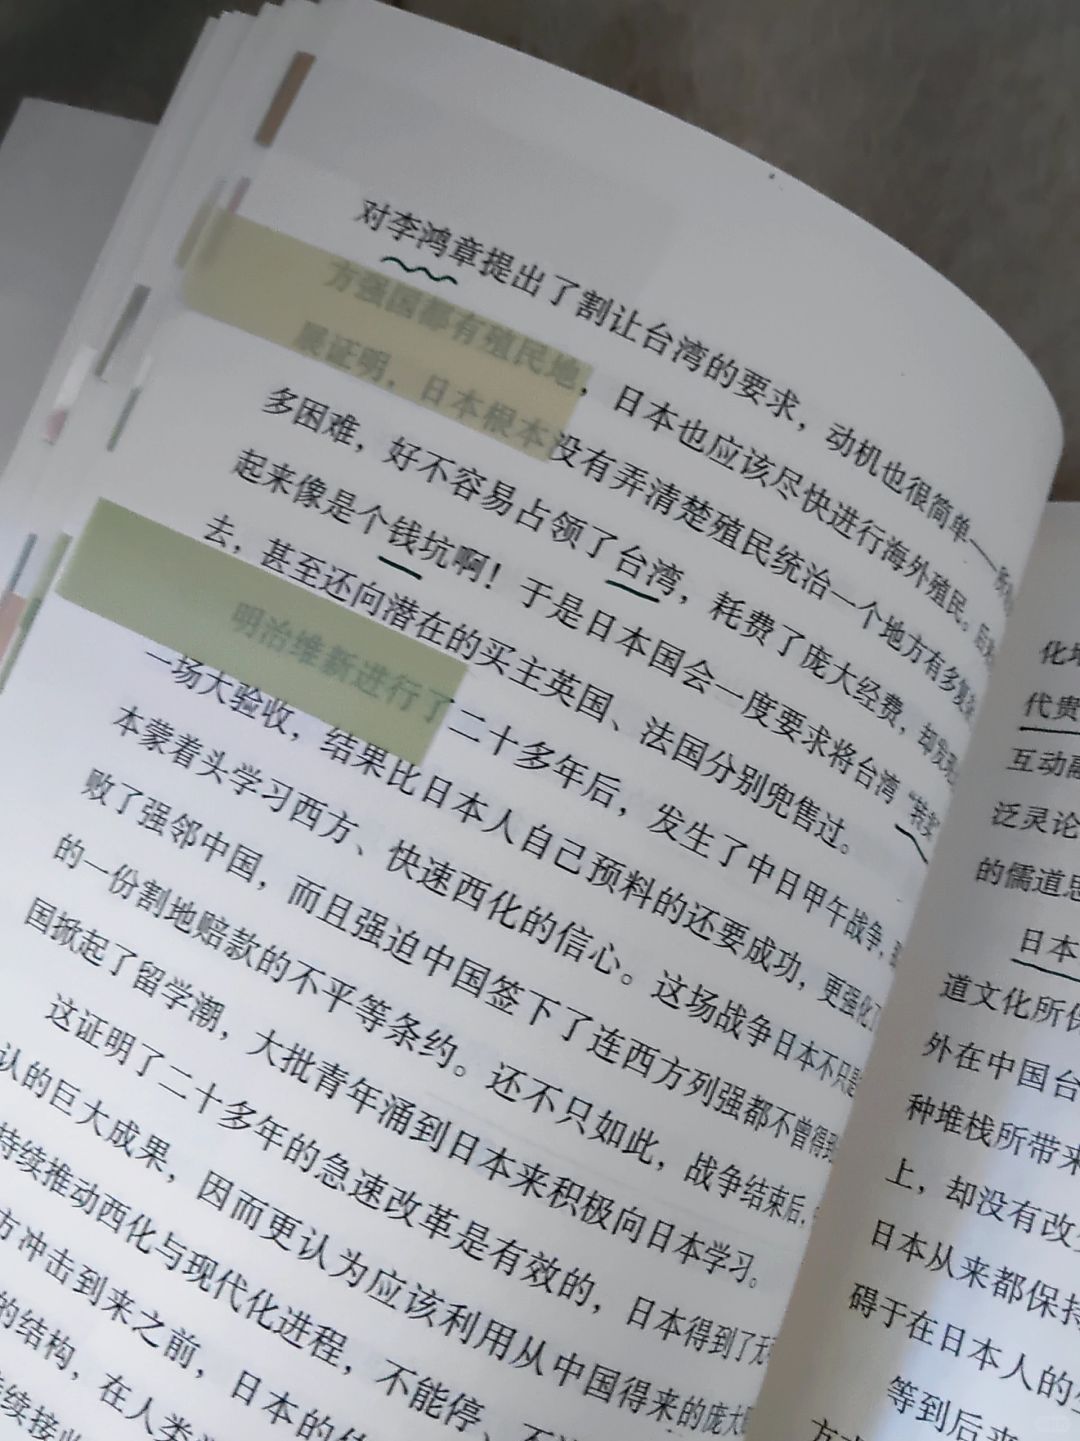 对李鸿章提出了割让台湾的要求，动机也很简单——
方强国都有殖民地，日本也应该尽快进行海外殖民。后
展证明，日本根本没有弄清楚殖民统治一个地方有多
多困难，好不容易占领了台湾，耗费了庞大经费，却发现
起来像是个钱坑啊！于是日本国会一度要求将台湾“转卖
去，甚至还向潜在的买主英国、法国分别兜售过。
明治维新进行了二十多年后，发生了中日甲午战争，
一场大验收，结果比日本人自己预料的还要成功，更强化了
本蒙着头学习西方、快速西化的信心。这场战争日本不只是
败了强邻中国，而且强迫中国签下了连西方列强都不曾得到
的一份割地赔款的不平等条约。还不只如此，战争结束后，
国掀起了留学潮，大批青年涌到日本来积极向日本学习。
这证明了二十多年的急速改革是有效的，日本得到了
认的巨大成果，因而更认为应该利用从中国得来的庞大
持续推动西化与现代化进程，不能停、不
方冲击到来之前，日本的
的结构，在人类
化地
代贵
互动融
泛灵论
的儒道思
日本
道文化所保
外在中国台
种堆栈所带来
上，却没有改变
日本从来都保持
碍于在日本人的
等到后来